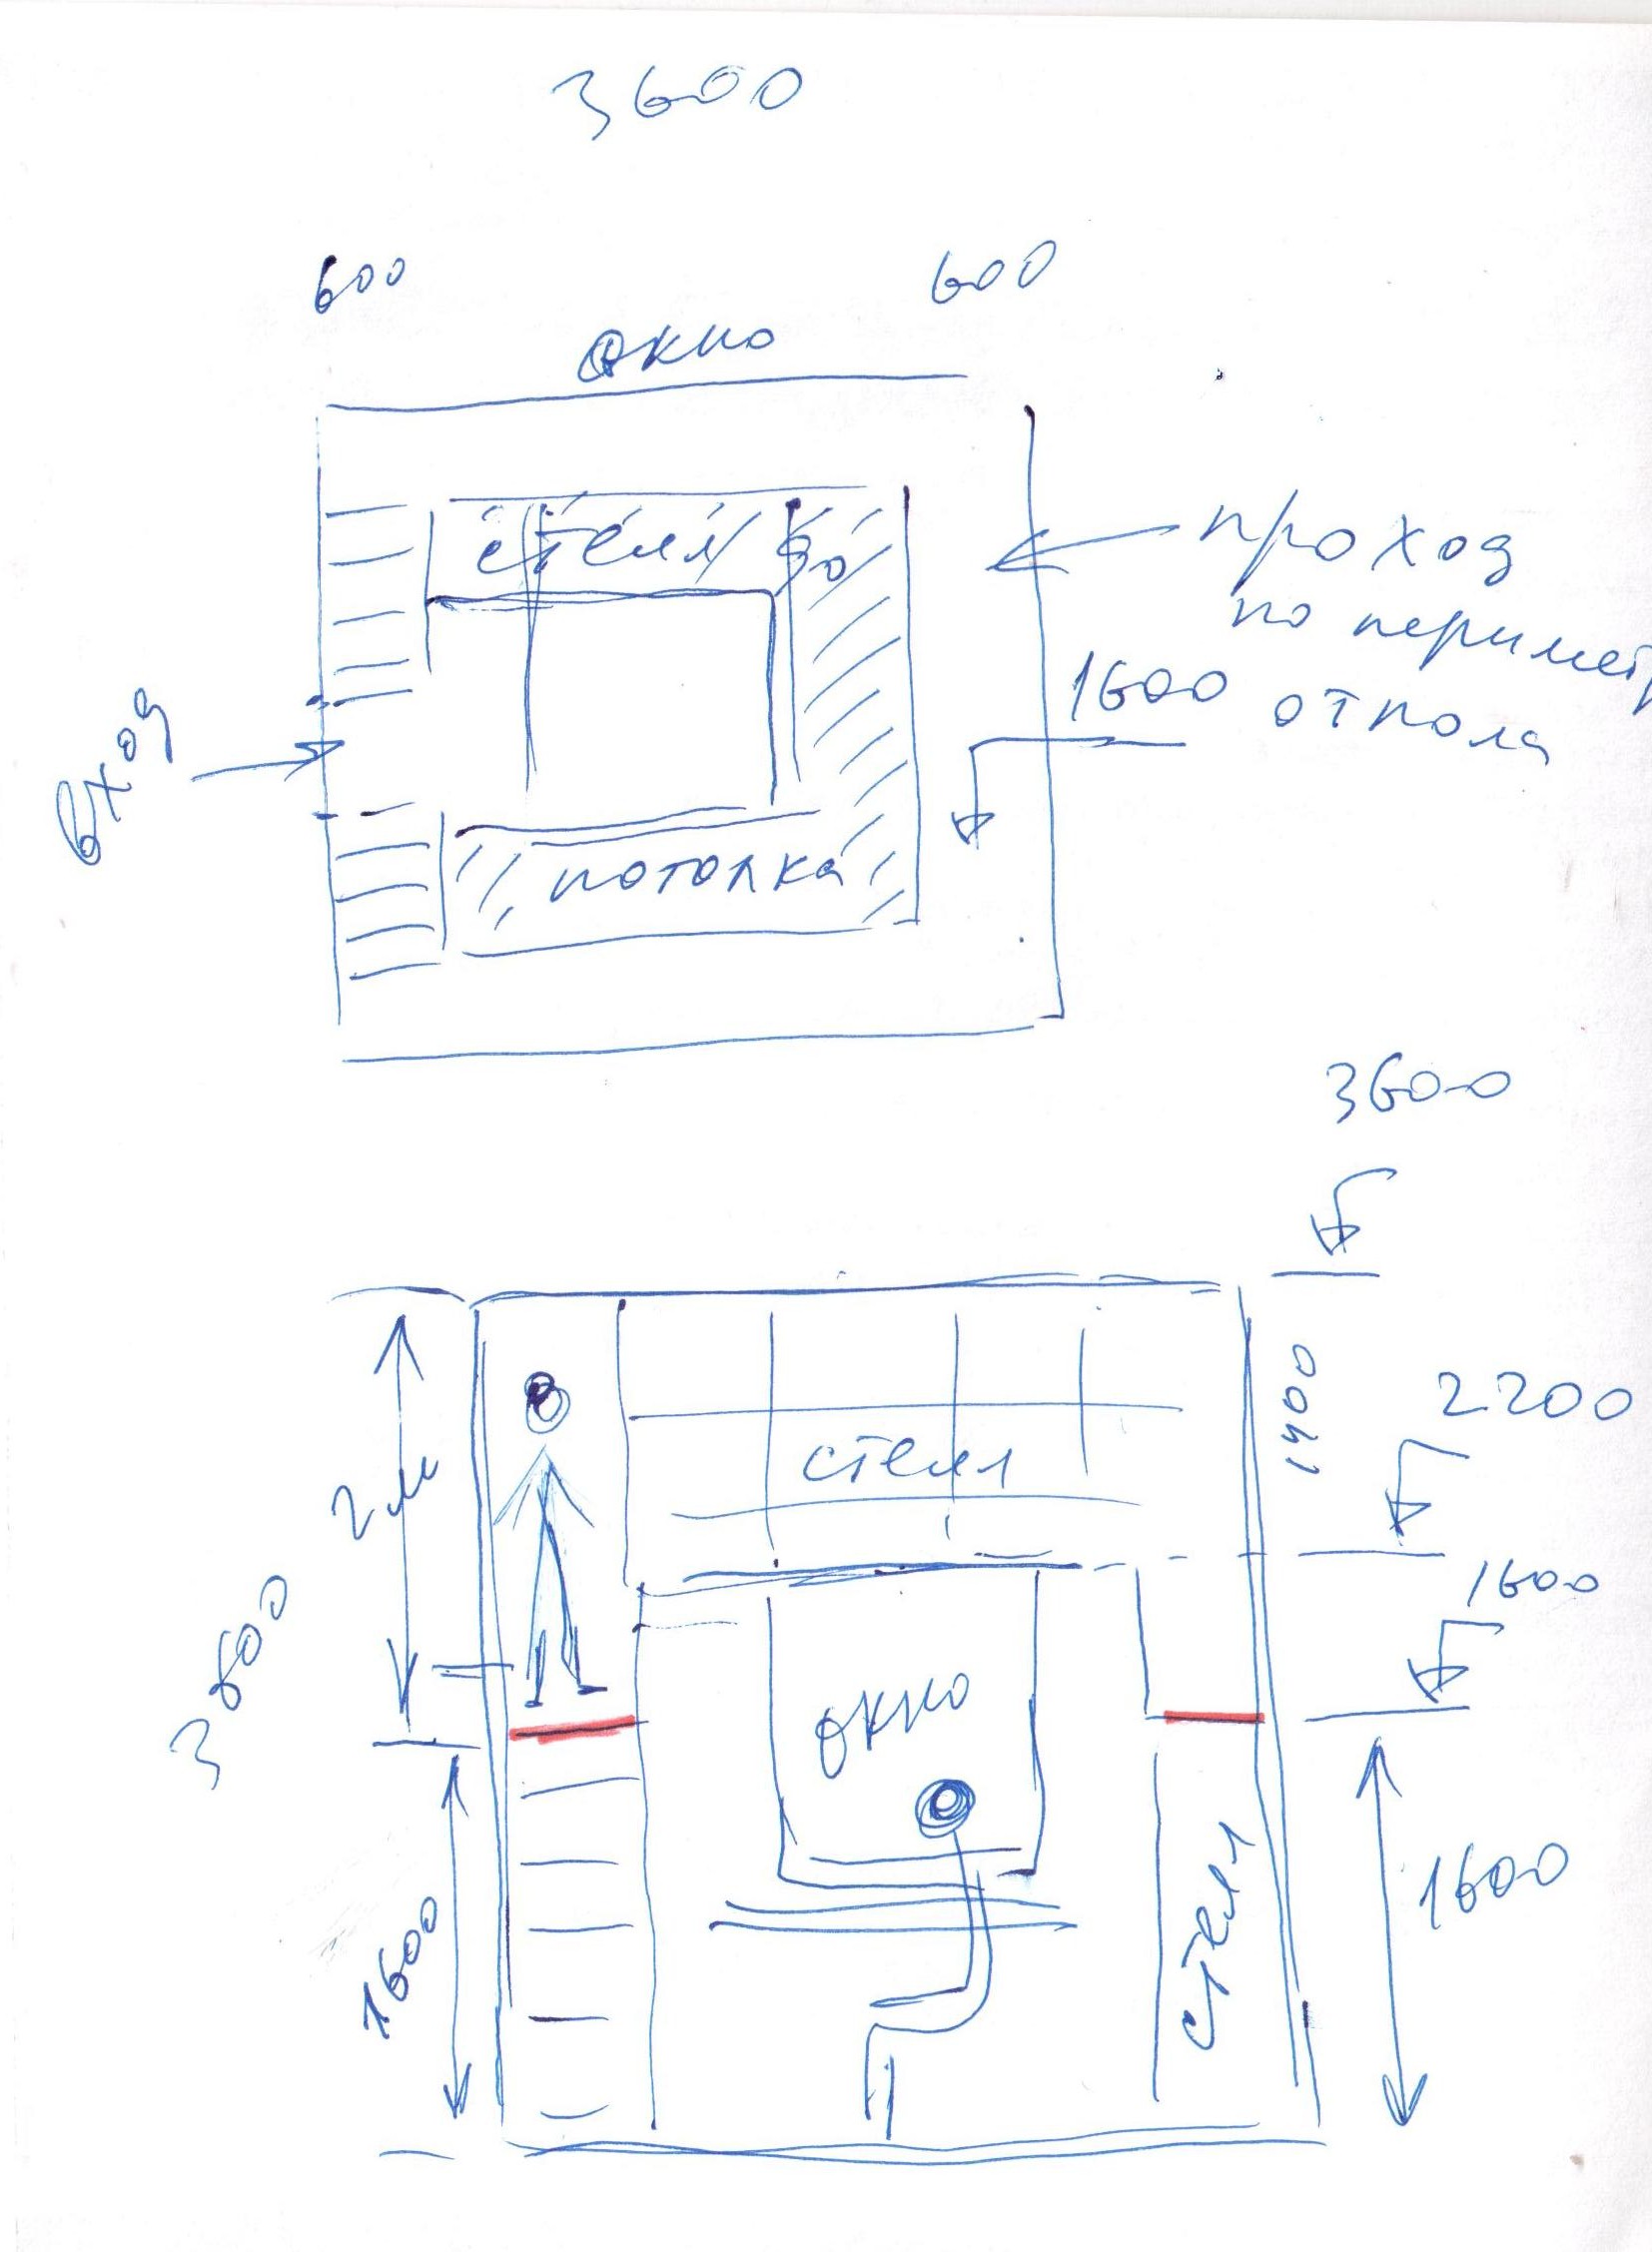 3600
600
600
окно
стелл до
потолка
проход
по периметр
1600 от пола
вход
3600
2 м
стелл
1400
2200
1600
3600
окно
1600
стелл
1600